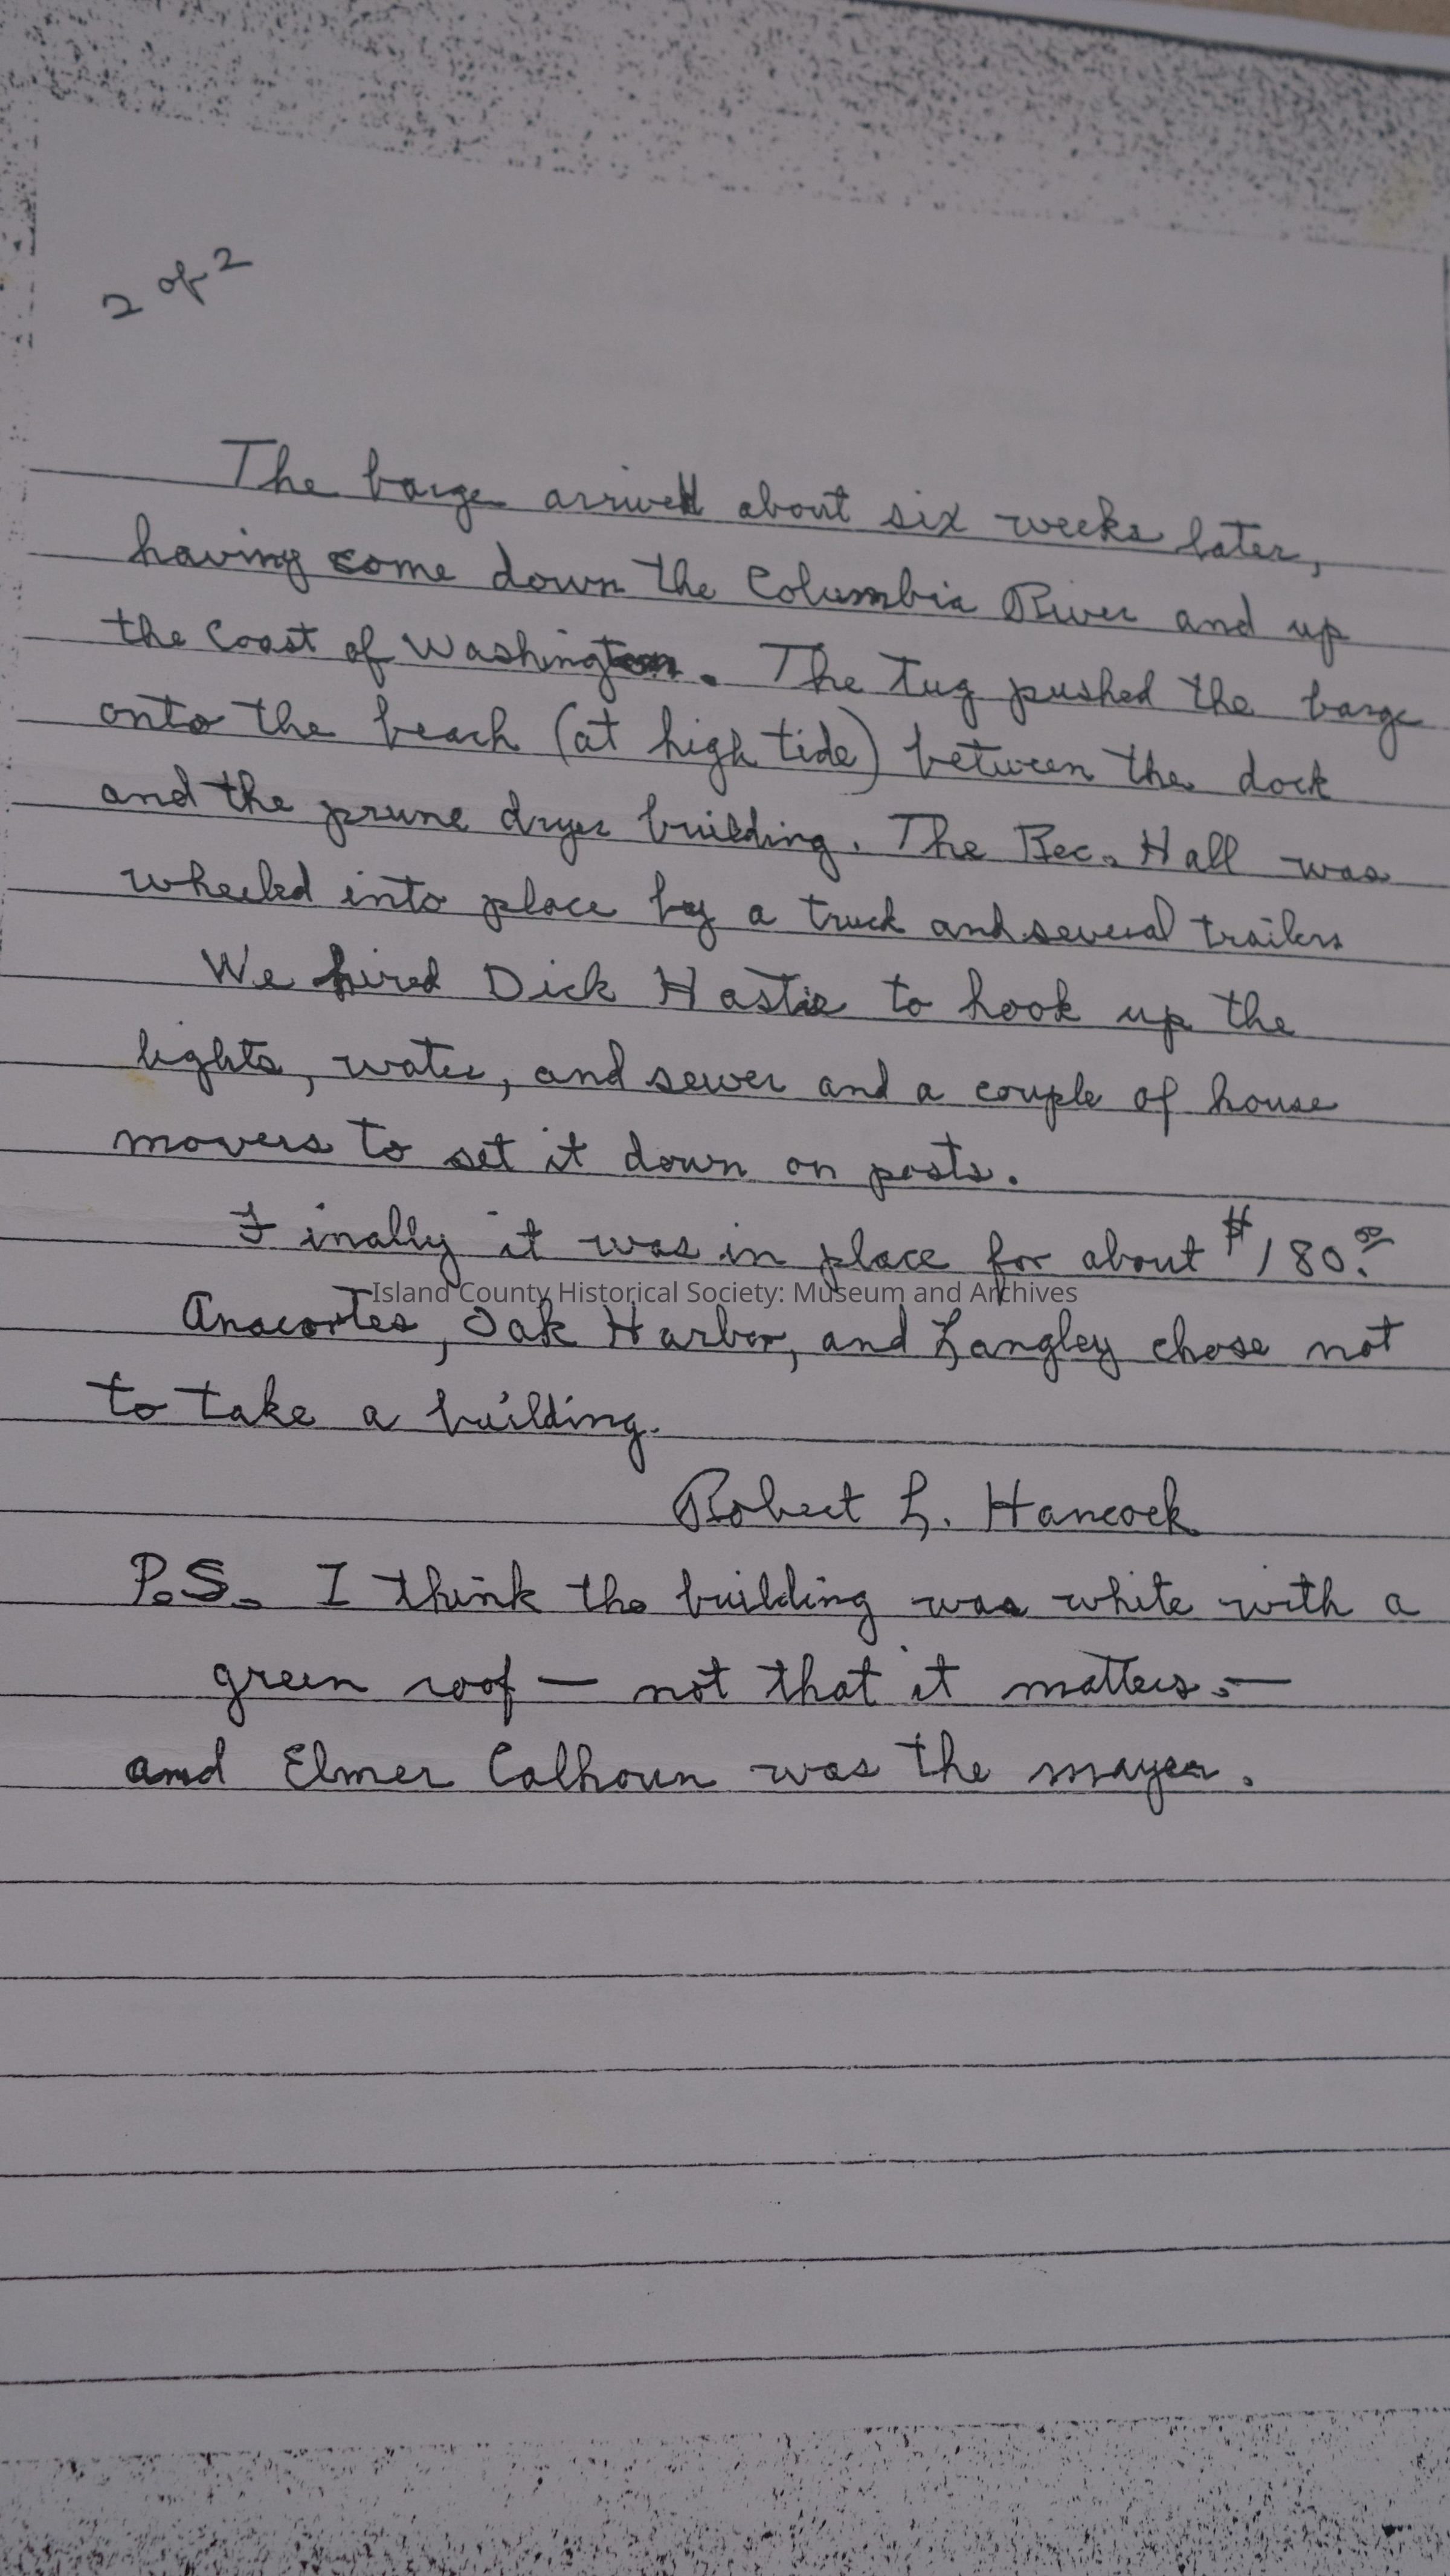 2 of 2
The barge arrived about six weeks later,
having come down the Columbia River and up
the Coast of Washington. The tug pushed the barge
onto the beach (at high tide) between the dock
and the prune dryer building. The Rec. Hall was
wheeled into place by a truck and several trailers
We hired Dick Hastie to hook up the
lights, water, and sewer and a couple of house
movers to set it down on posts.
Finally it was in place for about $180.00
Island County Historical Society: Museum and Archives
Anacortes, Oak Harbor, and Langley chose not
to take a building.
Robert L. Hancock
P.S. I think the building was white with a
green roof — not that it matters. —
and Elmer Calhoun was the mayor.